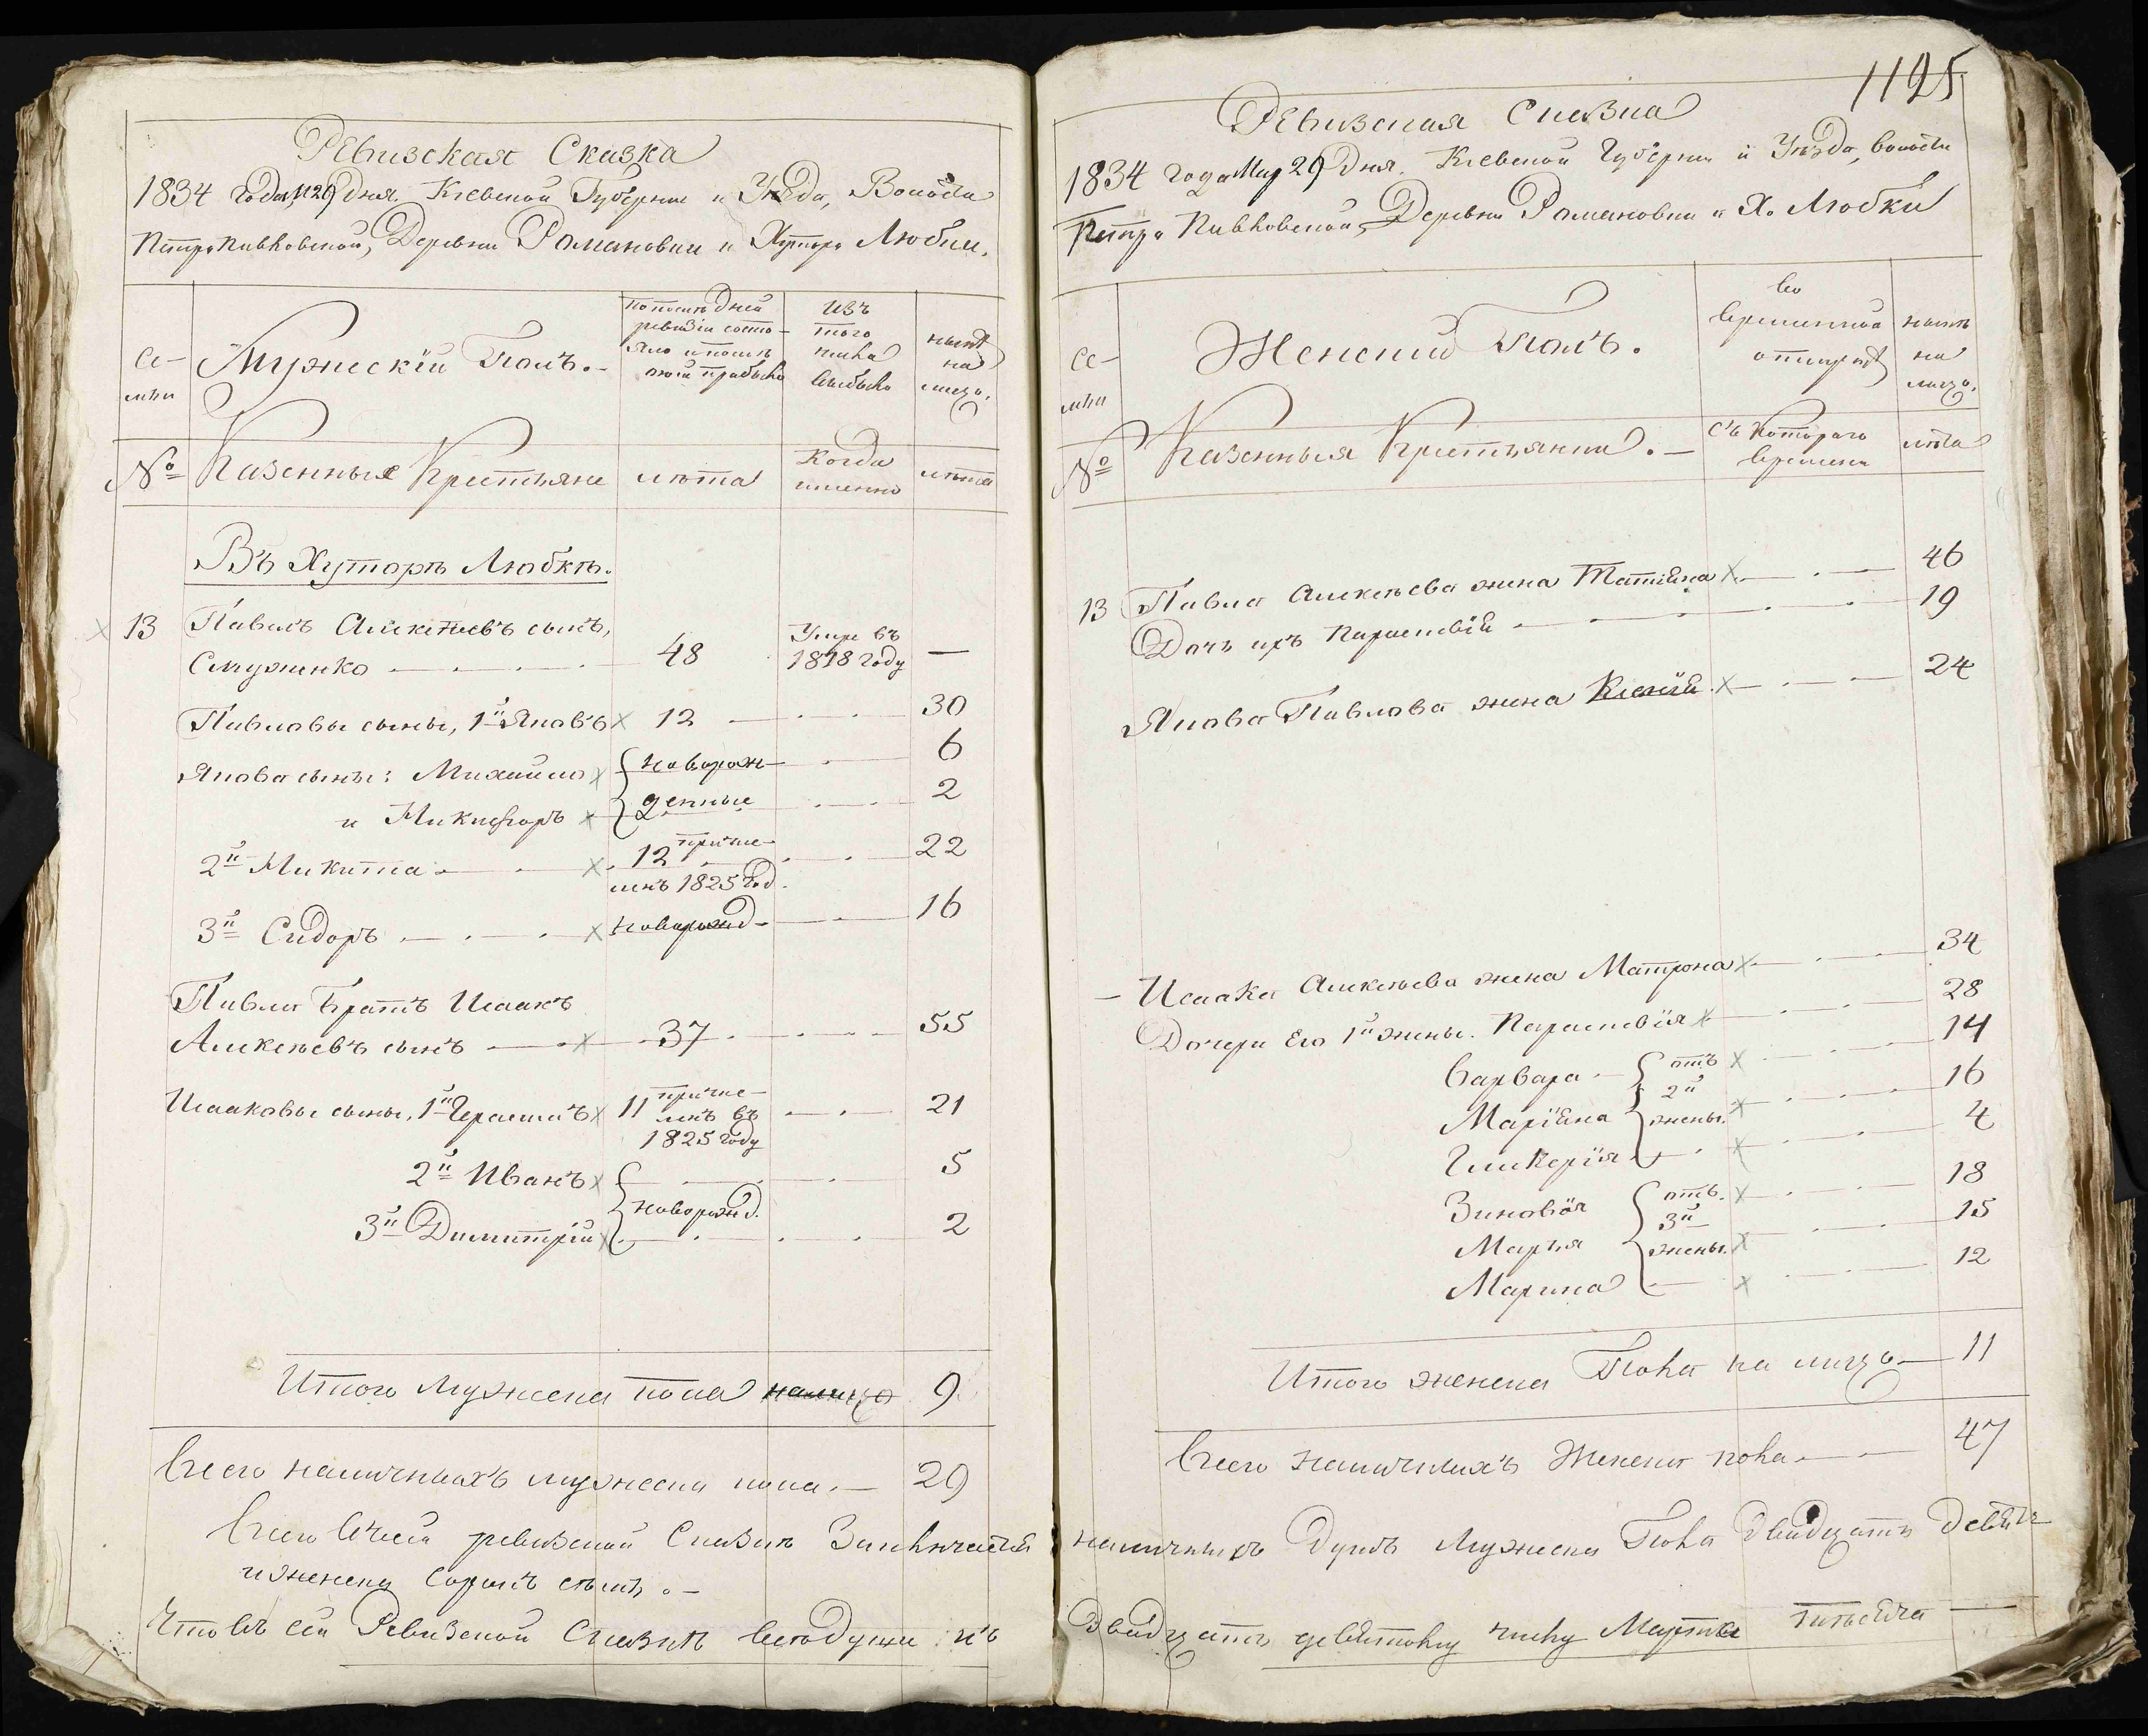 Ревизская Сказка
1834 года М 29 Дня. Кіевской Губерніи и Уезда, Волости
Петропивловской, Деревни Романовки и Хутора Любки.
Се-
мьи
Мужескій Полъ.
По последней
ревизіи состо-
яло и после
оной прибыло
Изъ
того
числа
выбыло
ныне
на
лицо.
№
Казенные Крестьяне
лета
Когда
именно
лета
Въ Хуторе Любке.
13 Павелъ Алексеевъ сынъ,
Смуженко 48 Умре въ 1818 году —
Павловы сыны, 1й Яковъ 12 30
Якова сыны: Михайло новорож- 6
и Никифоръ денные 2
2й Микита 12 причис- 22
ленъ 1825 год.
3й Сидоръ новорожд 16
Павла Братъ Исаакъ
Алексеевъ сынъ 37 55
Исааковы сыны, 1й Герасимъ 11 причис- 21
ленъ въ
1825 году
2й Иванъ 5
новорожд.
3й Димитрій 2
Итого мужеска пола налицо 9
Всего наличныхъ мужеска пола. — 29
Всего въ сей ревизской Сказке Заключается
и женска сорокъ семь. —
Что въ сей Ревизской Сказке все души къ
1125
Ревизская Сказка
1834 года Мар 29 Дня. Кіевской Губерніи и Уезда, волости
Петро Пивловской, Деревни Романовки и Х. Любки
Се-
мьи
Женский Полъ.
Во
временной
отлучке
ныне
на
лицо.
№
Казенныя Крестьянки. —
Съ которого
времени
лета
13 Павла Алексеева жена Татіяна 46
Дочь ихъ Параскевія 19
Якова Павлова жена Ксенія 24
— Исаака Алексеева жена Матрона 34
Дочери Его 1й жены. Параскевія 28
Варвара отъ 14
2й
Маріяна жены. 16
Гликерія 4
Зиновія отъ 18
3й
Марья жены. 15
Марина 12
Итого женска Пола на лицо — 11
Всего наличныхъ Женска пола — 47
наличныхъ душъ Мужеска Пола двадцать девять
Двадцать девятому числу Марта